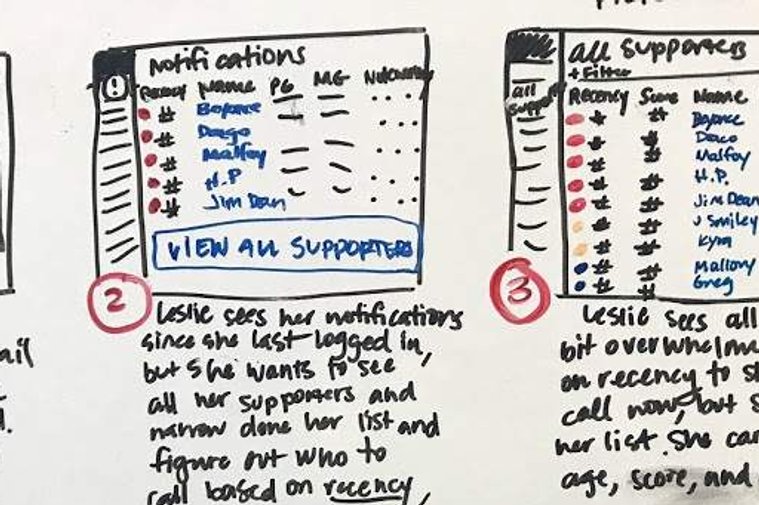 notifications
!
Recency Name PG MG
# Beyonce
# Draco
# Malfoy
# H.P
# Jim Dean
VIEW ALL SUPPORTERS
2
Leslie sees her notifications
since she last logged in,
but she wants to see
all her supporters and
narrow done her list and
figure out who to
call based on recency,
all supporters
+ Filter
all
Recency Score Name
# # Beyonce
# # Draco
# # Malfoy
# # H.P.
# # Jim Dean
# # J Smiley
# # Kym
# # Mallory
# # Greg
3
Leslie sees all
bit overwhelm
on recency to
call now, but
her list. She
age, score, and
ail